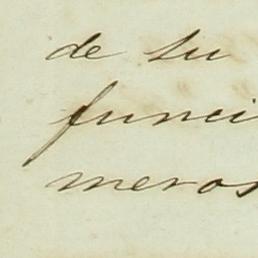 de su
funci
meros